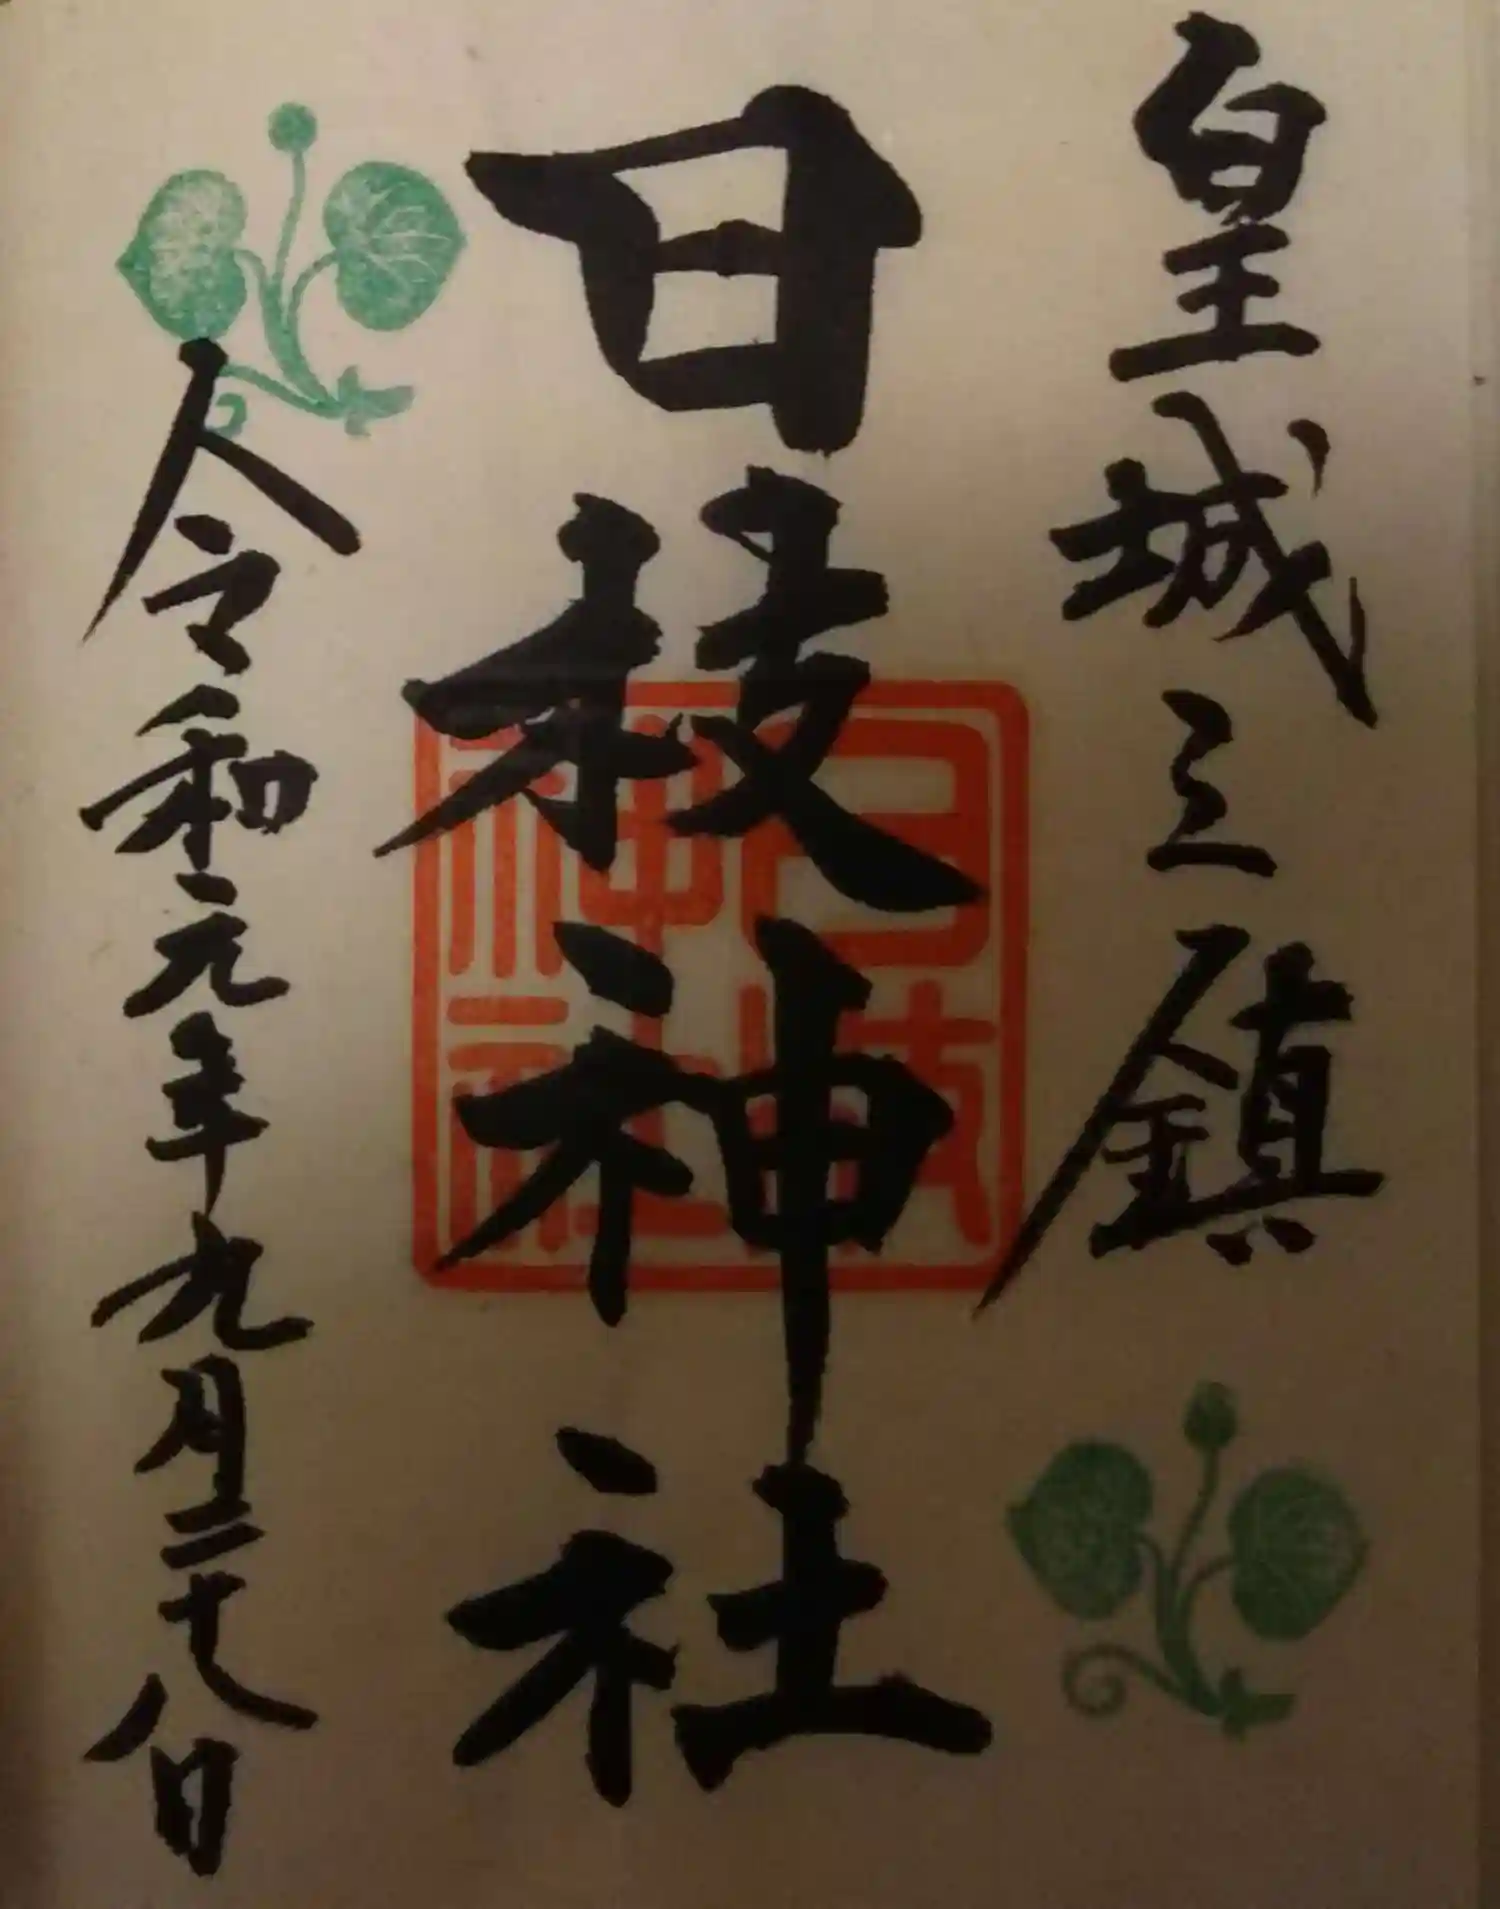 皇城之鎮
日枝神社
日枝神社
令和元年九月二十八日